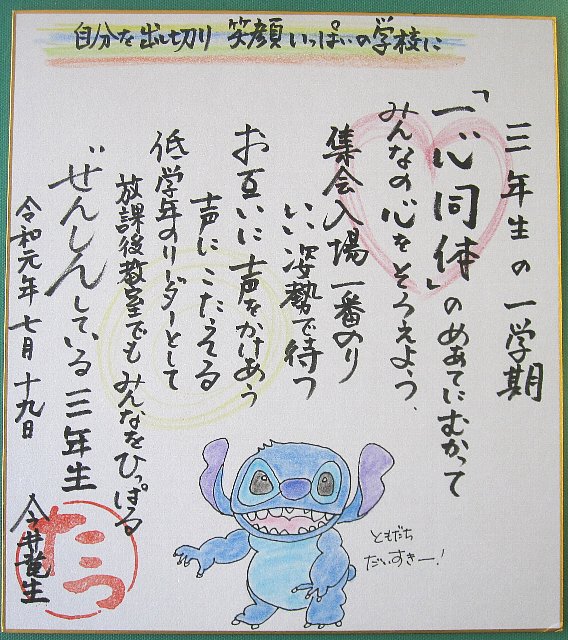 自分を出し切り 笑顔いっぱいの学校に
三年生の一学期
「一心同体」のめあてにむかって
みんなの心をそろえよう、
集会入場一番のり
いい姿勢で待つ
お互いに声をかけあう
声にこたえる
低学年のリーダーとして
放課後教室でも みんなをひっぱる
"ぜんしん"している 三年生
令和元年七月十九日
今井竜生
たつ
ともだち
だいすきー!